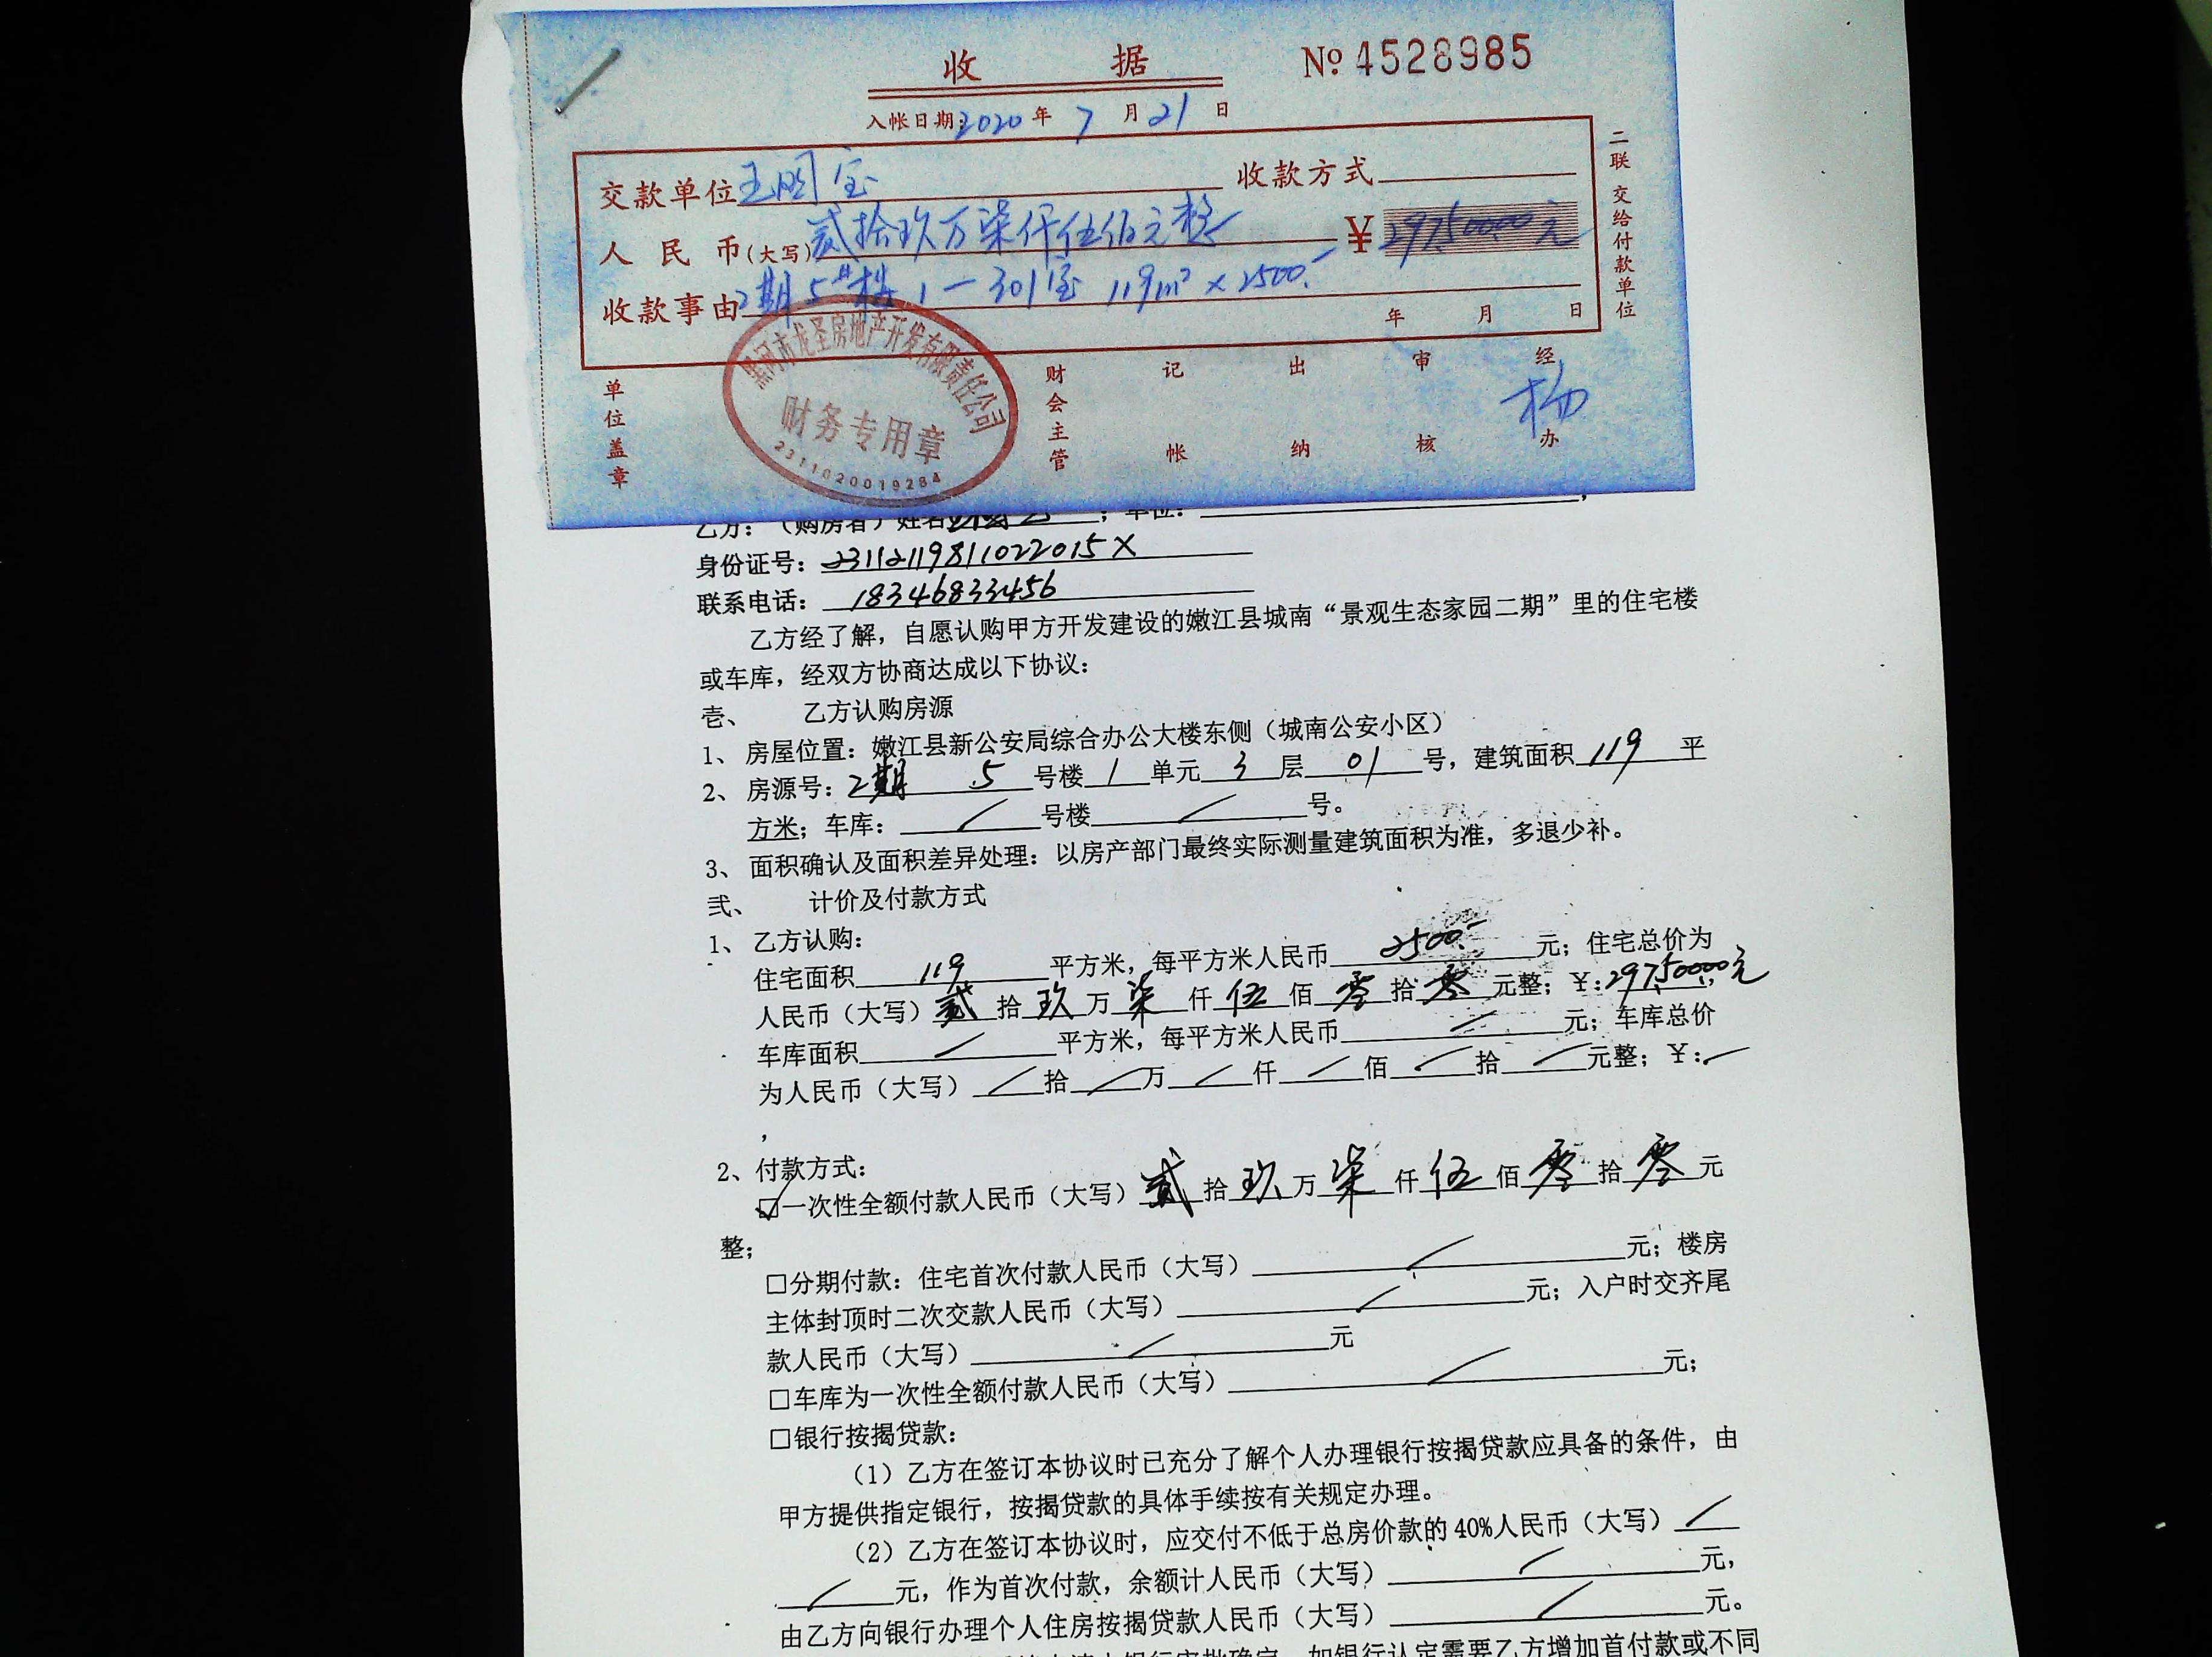 收 据 № 4528985
入帐日期:2020 年 7 月 21 日
交款单位 王 宝 收款方式
人民币(大写) 贰拾玖万柒仟伍佰元整 ¥ 297500.00元
收款事由 2期5#楼1-301室 119m² x 2500.-
年 月 日
二联 交给付款单位
单位盖章
财会主管 记帐 出纳 审核 经办 杨
黑河市龙圣房地产开发有限责任公司
财务专用章
2311020019284
乙方:(购房者)姓名 ;单位:
身份证号:23112119811022015X
联系电话:18346833456
乙方经了解,自愿认购甲方开发建设的嫩江县城南“景观生态家园二期”里的住宅楼
或车库,经双方协商达成以下协议:
壱、 乙方认购房源
1、房屋位置:嫩江县新公安局综合办公大楼东侧(城南公安小区)
2、房源号:2期 5 号楼 1 单元 3 层 01 号,建筑面积 119 平
方米;车库: / 号楼 / 号。
3、面积确认及面积差异处理:以房产部门最终实际测量建筑面积为准,多退少补。
弐、 计价及付款方式
1、乙方认购:
住宅面积 119 平方米,每平方米人民币 2500.- 元;住宅总价为
人民币(大写) 贰 拾 玖 万 柒 仟 伍 佰 零 拾 零 元整;¥:297500.00元
车库面积 / 平方米,每平方米人民币 / 元;车库总价
为人民币(大写) / 拾 / 万 / 仟 / 佰 / 拾 / 元整;¥: /
,
2、付款方式:
☑一次性全额付款人民币(大写) 贰 拾 玖 万 柒 仟 伍 佰 零 拾 零 元
整;
□分期付款:住宅首次付款人民币(大写) / 元;楼房
主体封顶时二次交款人民币(大写) / 元;入户时交齐尾
款人民币(大写) / 元
□车库为一次性全额付款人民币(大写) / 元;
□银行按揭贷款:
(1)乙方在签订本协议时已充分了解个人办理银行按揭贷款应具备的条件,由
甲方提供指定银行,按揭贷款的具体手续按有关规定办理。
(2)乙方在签订本协议时,应交付不低于总房价款的40%人民币(大写) /
/ 元,作为首次付款,余额计人民币(大写) / 元,
由乙方向银行办理个人住房按揭贷款人民币(大写) / 元。
如银行认定需要乙方增加首付款或不同